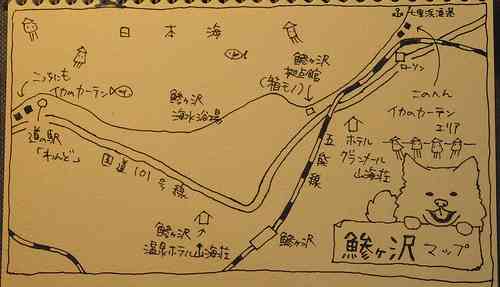 日本海
七里浜漁港
鰺ヶ沢
相撲館
(箱モノ)
ローソン
こっちにも
イカのカーテン
鰺ヶ沢
海水浴場
このへん
イカのカーテン
エリア
道の駅
「わんど」
国道101号線
五能線
ホテル
グランメール
山海荘
鰺ヶ沢
温泉ホテル山海荘
鰺ヶ沢
鰺ヶ沢マップ